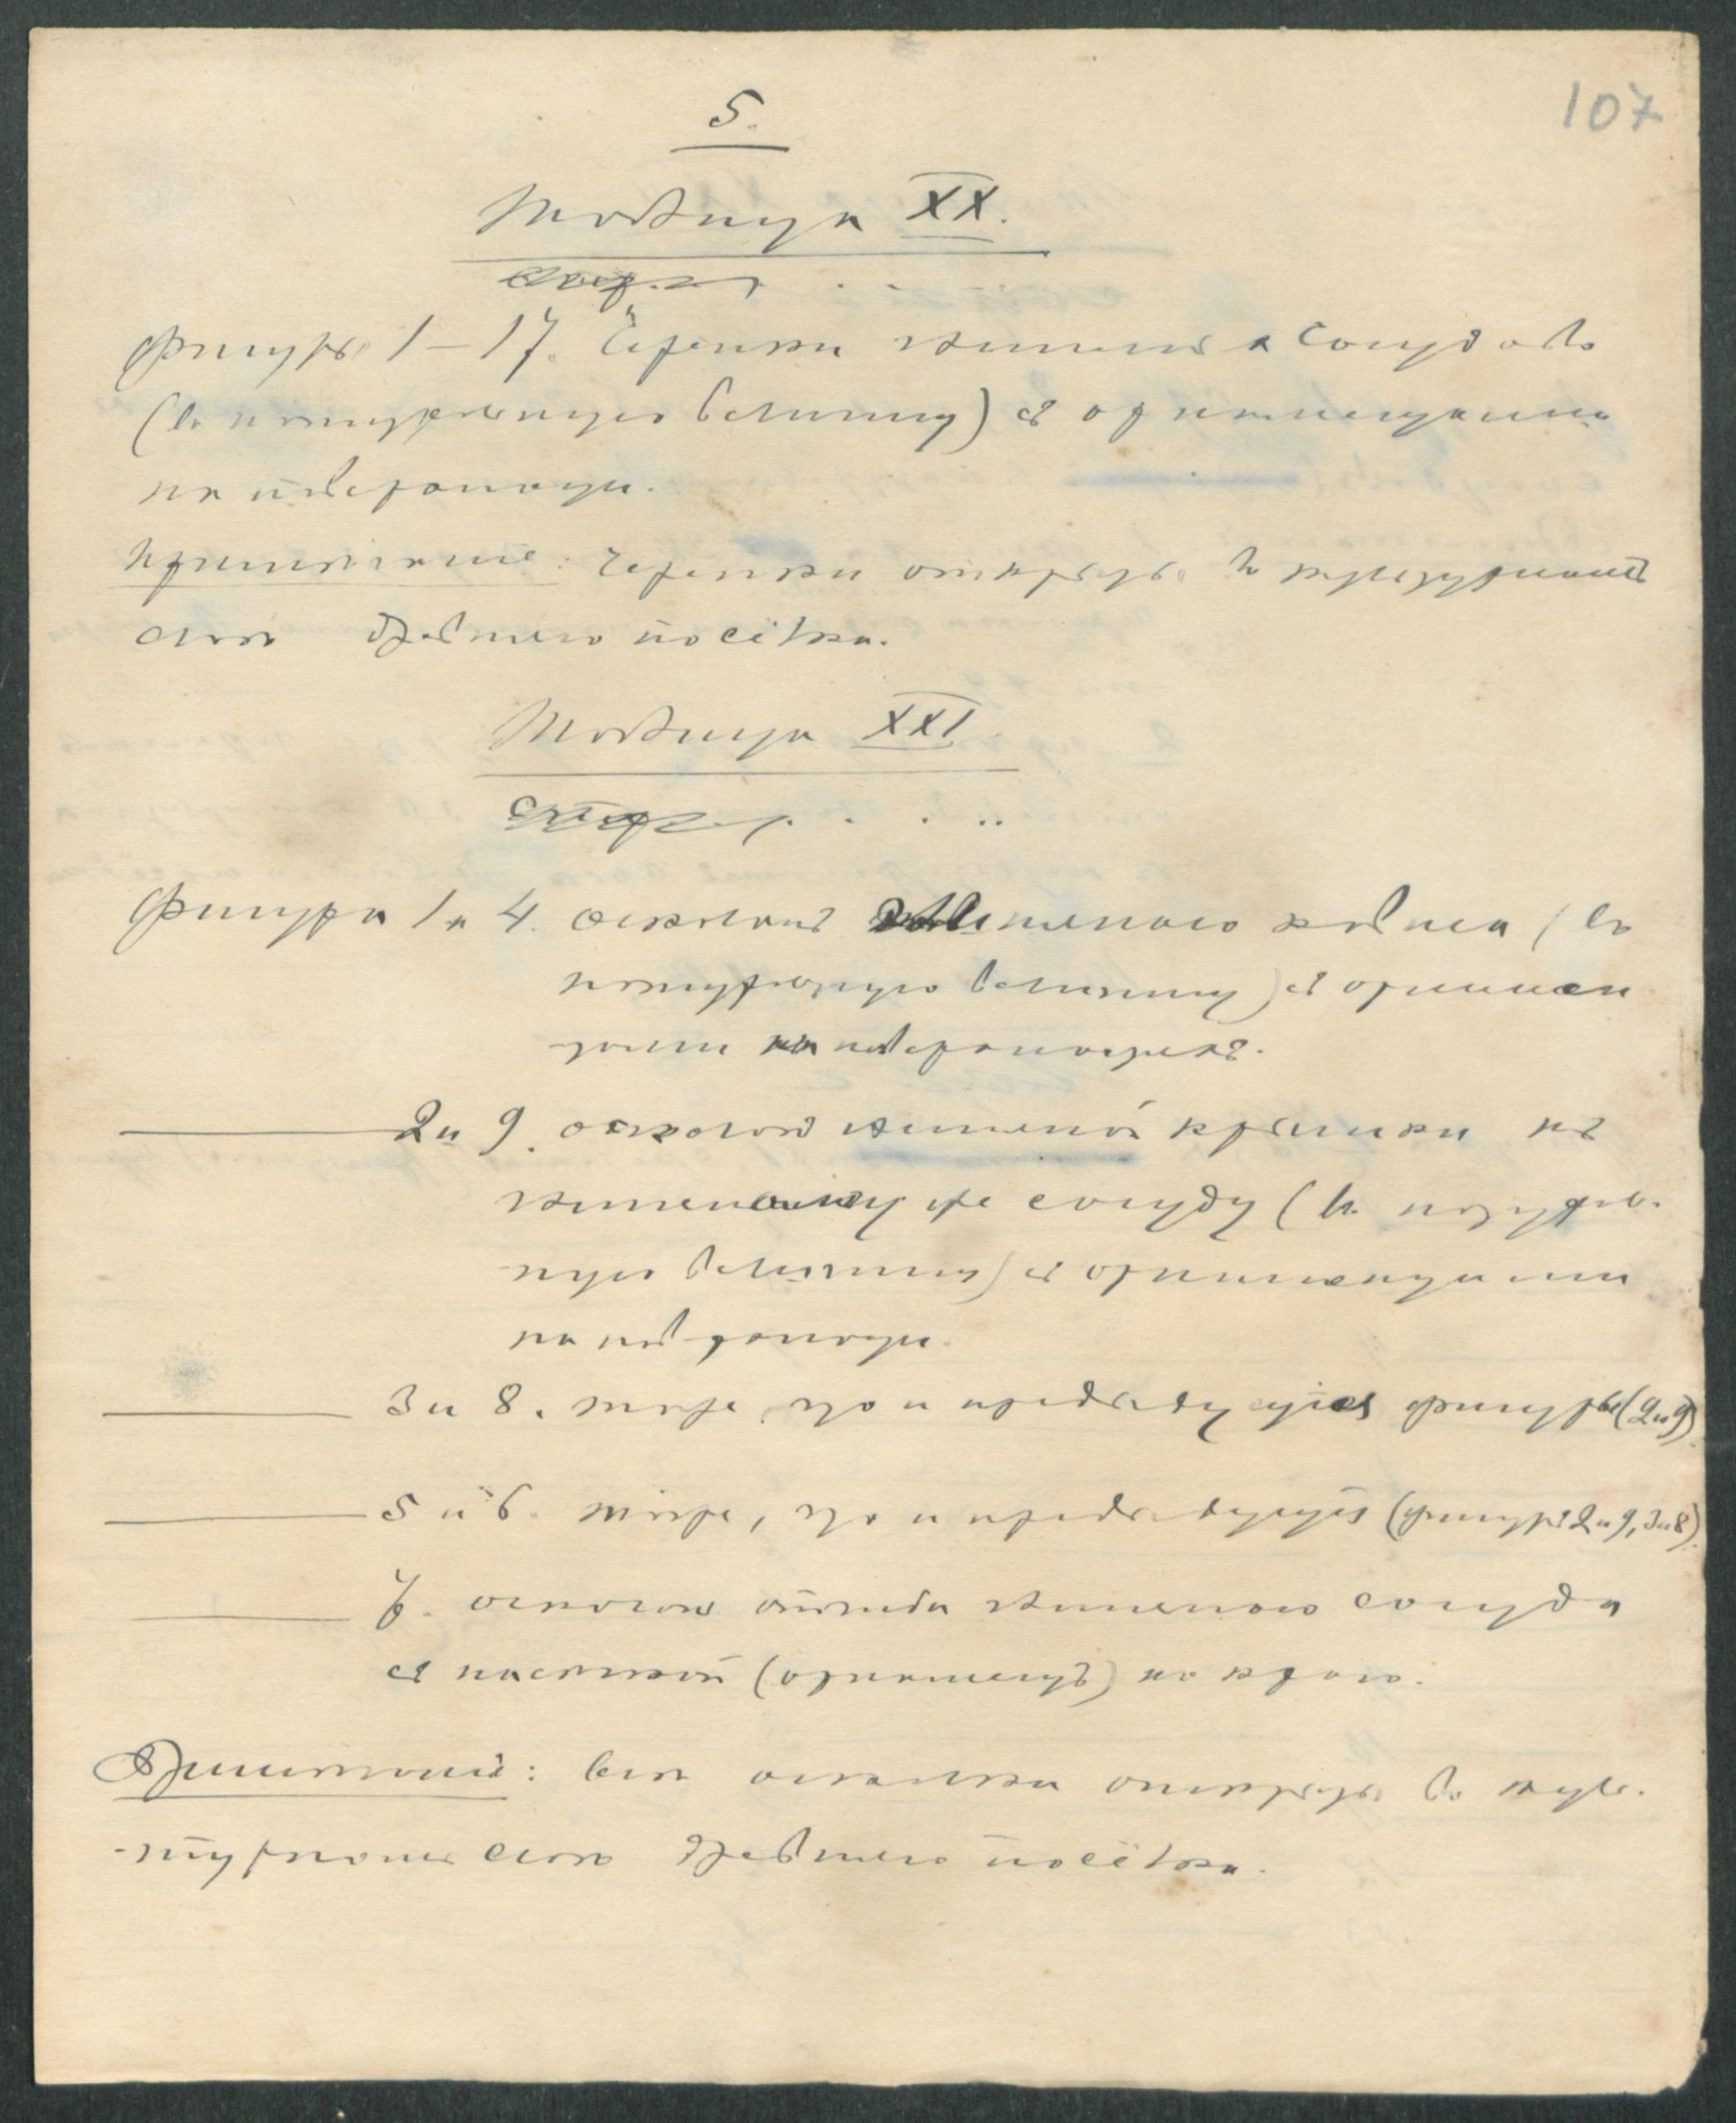 107
5.
Таблица XX.
Стр. . .
Фигуры 1–17. Черепки глиняныхъ сосудовъ
(въ натуральную величину) съ орнаментами
на поверхности.
Примѣчаніе: Черепки открыты въ культурномъ
слоѣ древняго посёлка.
Таблица XXI.
Стр. . . ..
Фигура 1 и 4. осколки глинянаго (въ
натуральную величину) съ орнамен
тами на поверхностяхъ.
2 и 9. осколки глиняной крышки къ
глиняному же сосуду (въ натураль-
ную величину) съ орнаментами
на поверхности.
3 и 8. тоже, что и предъидущія фигуры (2 и 9)
5 и 6. тоже, что и предъидущія (фигуры 2 и 9, 3 и 8).
7. осколокъ глинянаго сосуда
съ насѣчкой (орнаментъ) по краю.
Примѣчаніе: всѣ осколки открыты въ куль-
-турномъ слоѣ древняго посёлка.